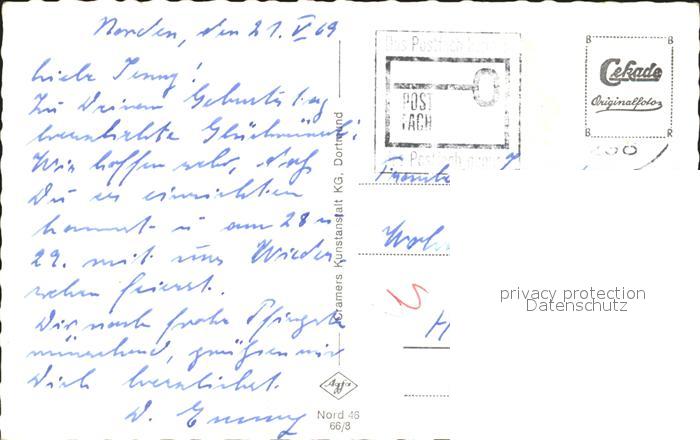 Norden, den 21. V 69
Liebe Jenny!
Zu Deinem Geburtstag
herzlichste Glückwünsche!
Wir hoffen sehr, daß
Du es einrichten
kannst u am 28 u
29. mit uns Wieder-
sehen feierst.
Dir noch frohe Pfingsten
wünschend, grüßen wir
Dich herzlichst.
D.
Cramers Kunstanstalt KG, Dortmund
Agfa
Nord 46
66/8
Das Postfach
POST
FACH
Das Postfach
B B
Cekade
Originalfotos
B R
Familie
privacy protection
Datenschutz